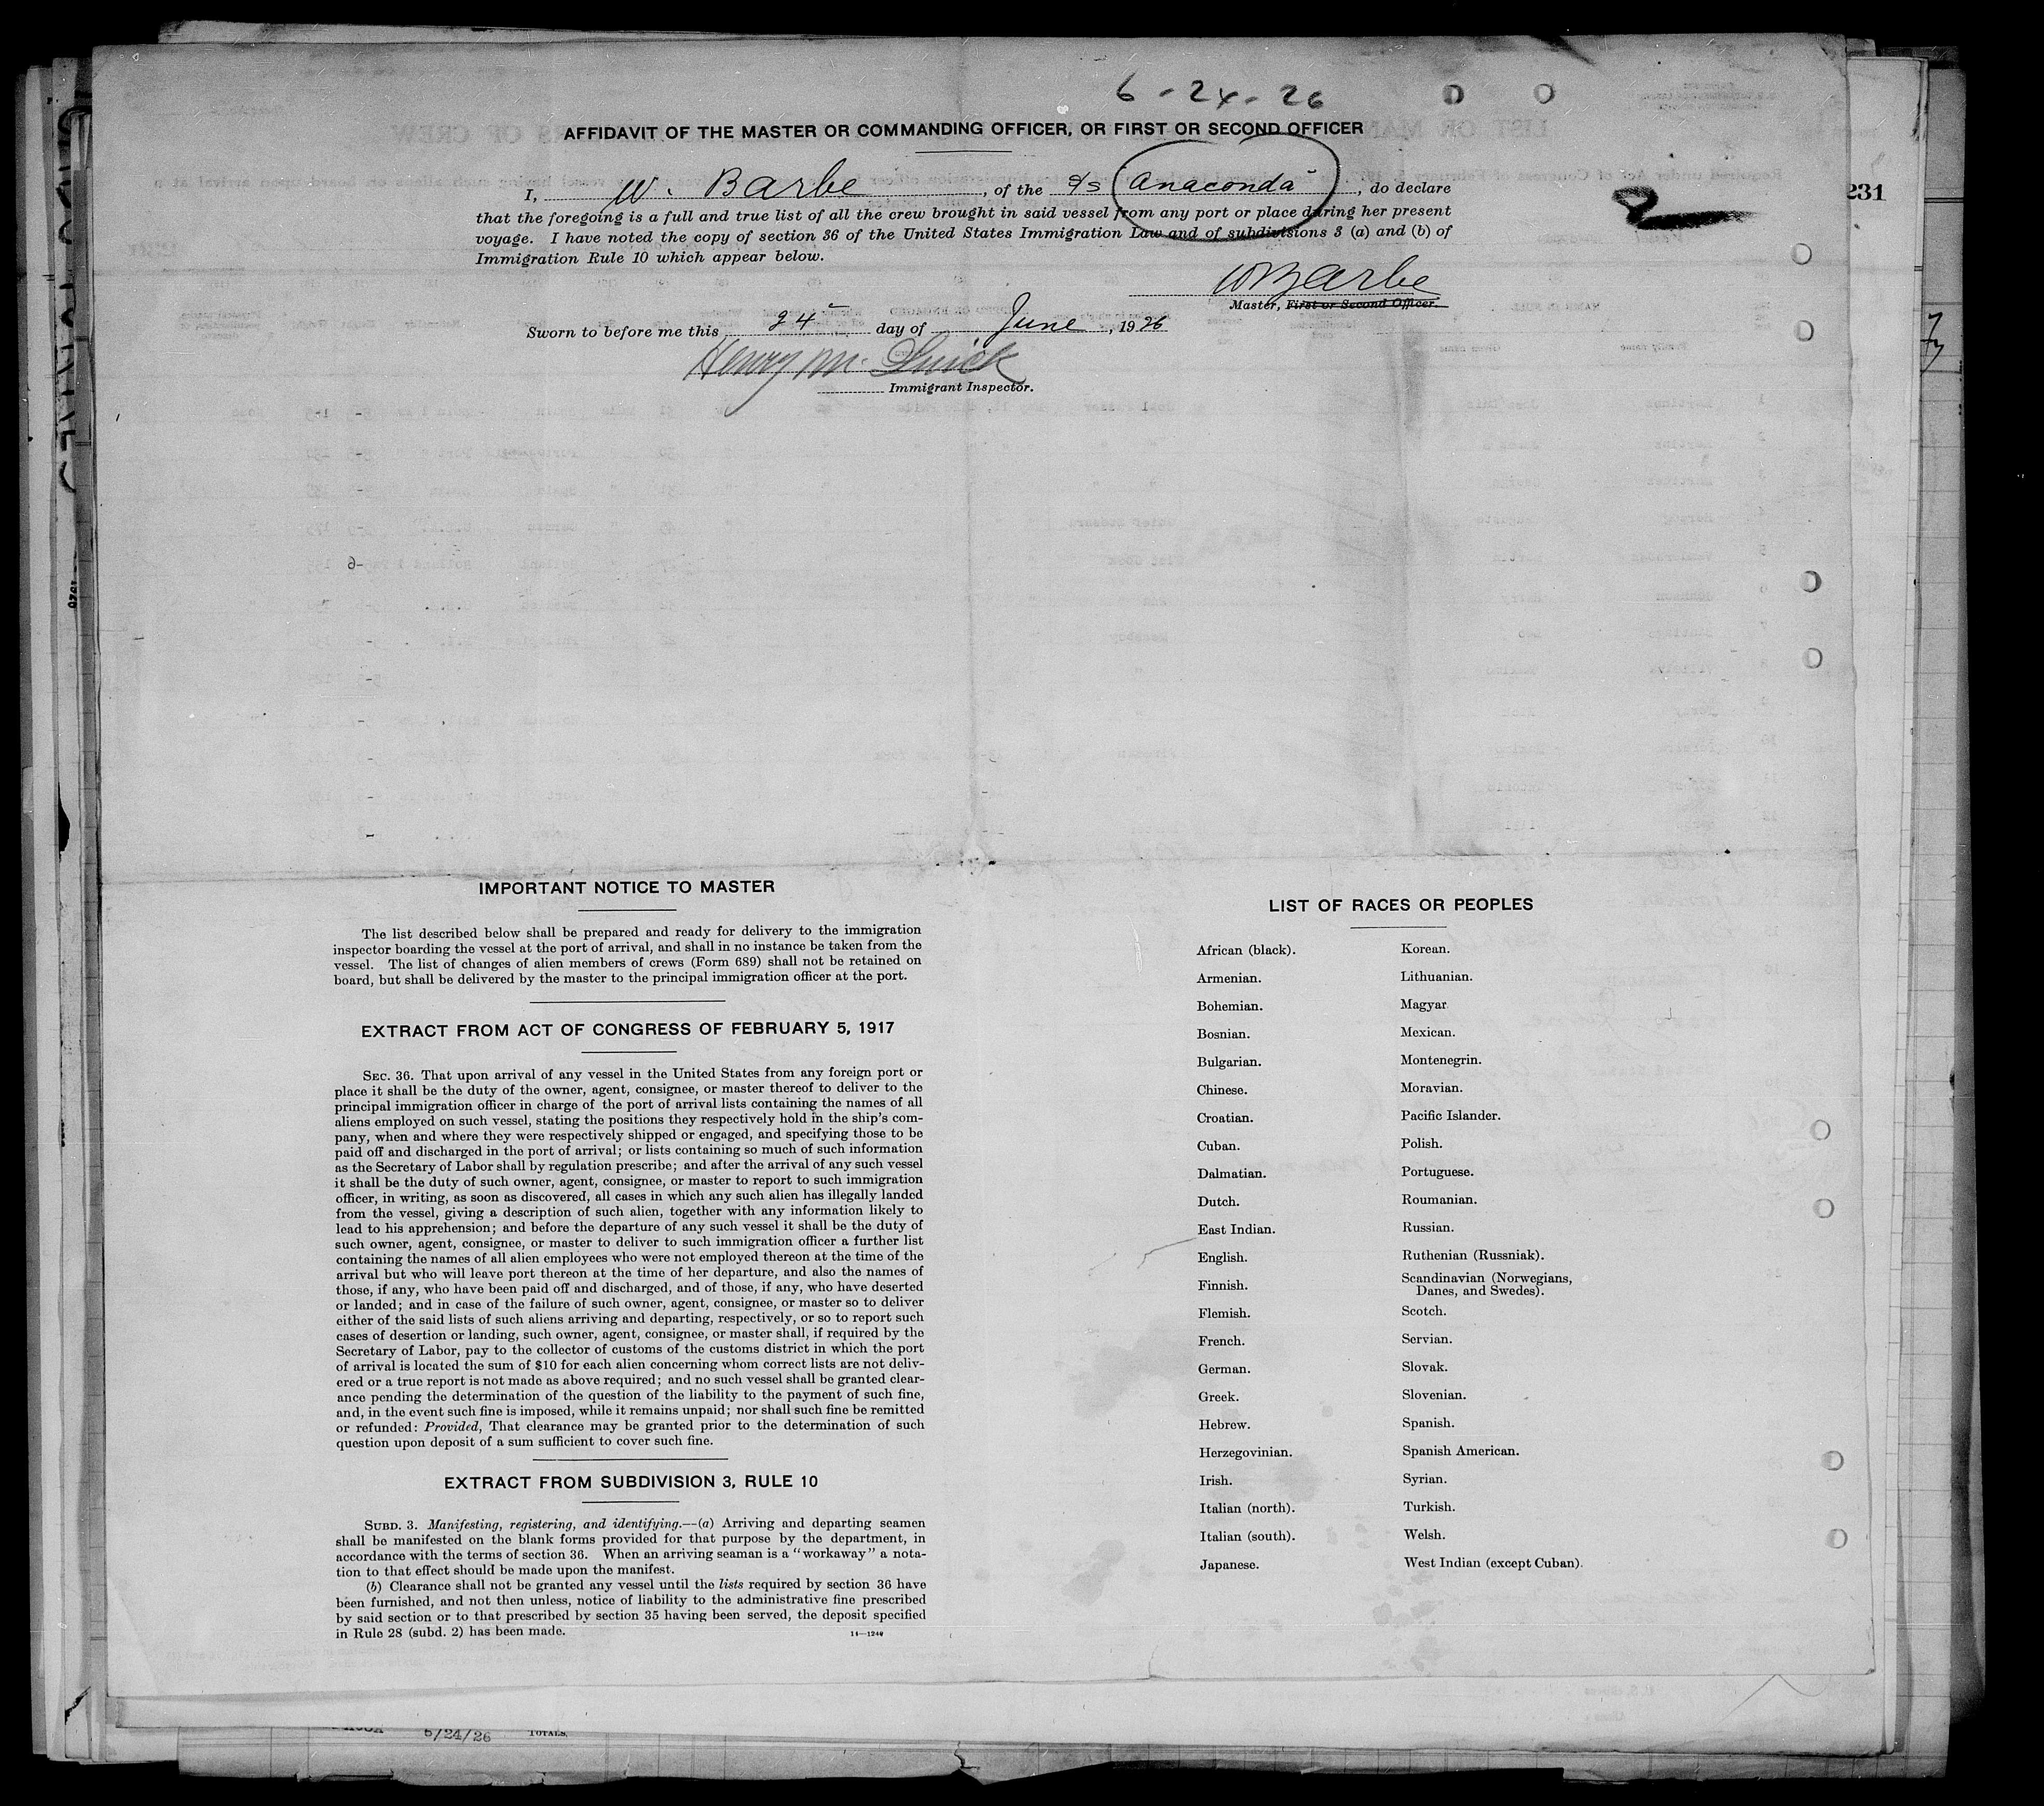 6-24-26
AFFIDAVIT OF THE MASTER OR COMMANDING OFFICER, OR FIRST OR SECOND OFFICER
I, W. Barbe, of the S/s Anaconda, do declare
that the foregoing is a full and true list of all the crew brought in said vessel from any port or place during her present
voyage. I have noted the copy of section 36 of the United States Immigration Law and of subdivisions 3 (a) and (b) of
Immigration Rule 10 which appear below.
231
W Barbe
Master, First or Second Officer.
Sworn to before me this 24 day of June, 1926
Henry M.
Immigrant Inspector.
IMPORTANT NOTICE TO MASTER
The list described below shall be prepared and ready for delivery to the immigration
inspector boarding the vessel at the port of arrival, and shall in no instance be taken from the
vessel. The list of changes of alien members of crews (Form 689) shall not be retained on
board, but shall be delivered by the master to the principal immigration officer at the port.
EXTRACT FROM ACT OF CONGRESS OF FEBRUARY 5, 1917
SEC. 36. That upon arrival of any vessel in the United States from any foreign port or
place it shall be the duty of the owner, agent, consignee, or master thereof to deliver to the
principal immigration officer in charge of the port of arrival lists containing the names of all
aliens employed on such vessel, stating the positions they respectively hold in the ship's com-
pany, when and where they were respectively shipped or engaged, and specifying those to be
paid off and discharged in the port of arrival; or lists containing so much of such information
as the Secretary of Labor shall by regulation prescribe; and after the arrival of any such vessel
it shall be the duty of such owner, agent, consignee, or master to report to such immigration
officer, in writing, as soon as discovered, all cases in which any such alien has illegally landed
from the vessel, giving a description of such alien, together with any information likely to
lead to his apprehension; and before the departure of any such vessel it shall be the duty of
such owner, agent, consignee, or master to deliver to such immigration officer a further list
containing the names of all alien employees who were not employed thereon at the time of the
arrival but who will leave port thereon at the time of her departure, and also the names of
those, if any, who have been paid off and discharged, and of those, if any, who have deserted
or landed; and in case of the failure of such owner, agent, consignee, or master so to deliver
either of the said lists of such aliens arriving and departing, respectively, or so to report such
cases of desertion or landing, such owner, agent, consignee, or master shall, if required by the
Secretary of Labor, pay to the collector of customs of the customs district in which the port
of arrival is located the sum of $10 for each alien concerning whom correct lists are not deliv-
ered or a true report is not made as above required; and no such vessel shall be granted clear-
ance pending the determination of the question of the liability to the payment of such fine,
and, in the event such fine is imposed, while it remains unpaid; nor shall such fine be remitted
or refunded: Provided, That clearance may be granted prior to the determination of such
question upon deposit of a sum sufficient to cover such fine.
EXTRACT FROM SUBDIVISION 3, RULE 10
SUBD. 3. Manifesting, registering, and identifying.—(a) Arriving and departing seamen
shall be manifested on the blank forms provided for that purpose by the department, in
accordance with the terms of section 36. When an arriving seaman is a "workaway" a nota-
tion to that effect should be made upon the manifest.
(b) Clearance shall not be granted any vessel until the lists required by section 36 have
been furnished, and not then unless, notice of liability to the administrative fine prescribed
by said section or to that prescribed by section 35 having been served, the deposit specified
in Rule 28 (subd. 2) has been made.
14—1240
LIST OF RACES OR PEOPLES
African (black).
Armenian.
Bohemian.
Bosnian.
Bulgarian.
Chinese.
Croatian.
Cuban.
Dalmatian.
Dutch.
East Indian.
English.
Finnish.
Flemish.
French.
German.
Greek.
Hebrew.
Herzegovinian.
Irish.
Italian (north).
Italian (south).
Japanese.
Korean.
Lithuanian.
Magyar
Mexican.
Montenegrin.
Moravian.
Pacific Islander.
Polish.
Portuguese.
Roumanian.
Russian.
Ruthenian (Russniak).
Scandinavian (Norwegians,
Danes, and Swedes).
Scotch.
Servian.
Slovak.
Slovenian.
Spanish.
Spanish American.
Syrian.
Turkish.
Welsh.
West Indian (except Cuban).
6/24/26 TOTALS.